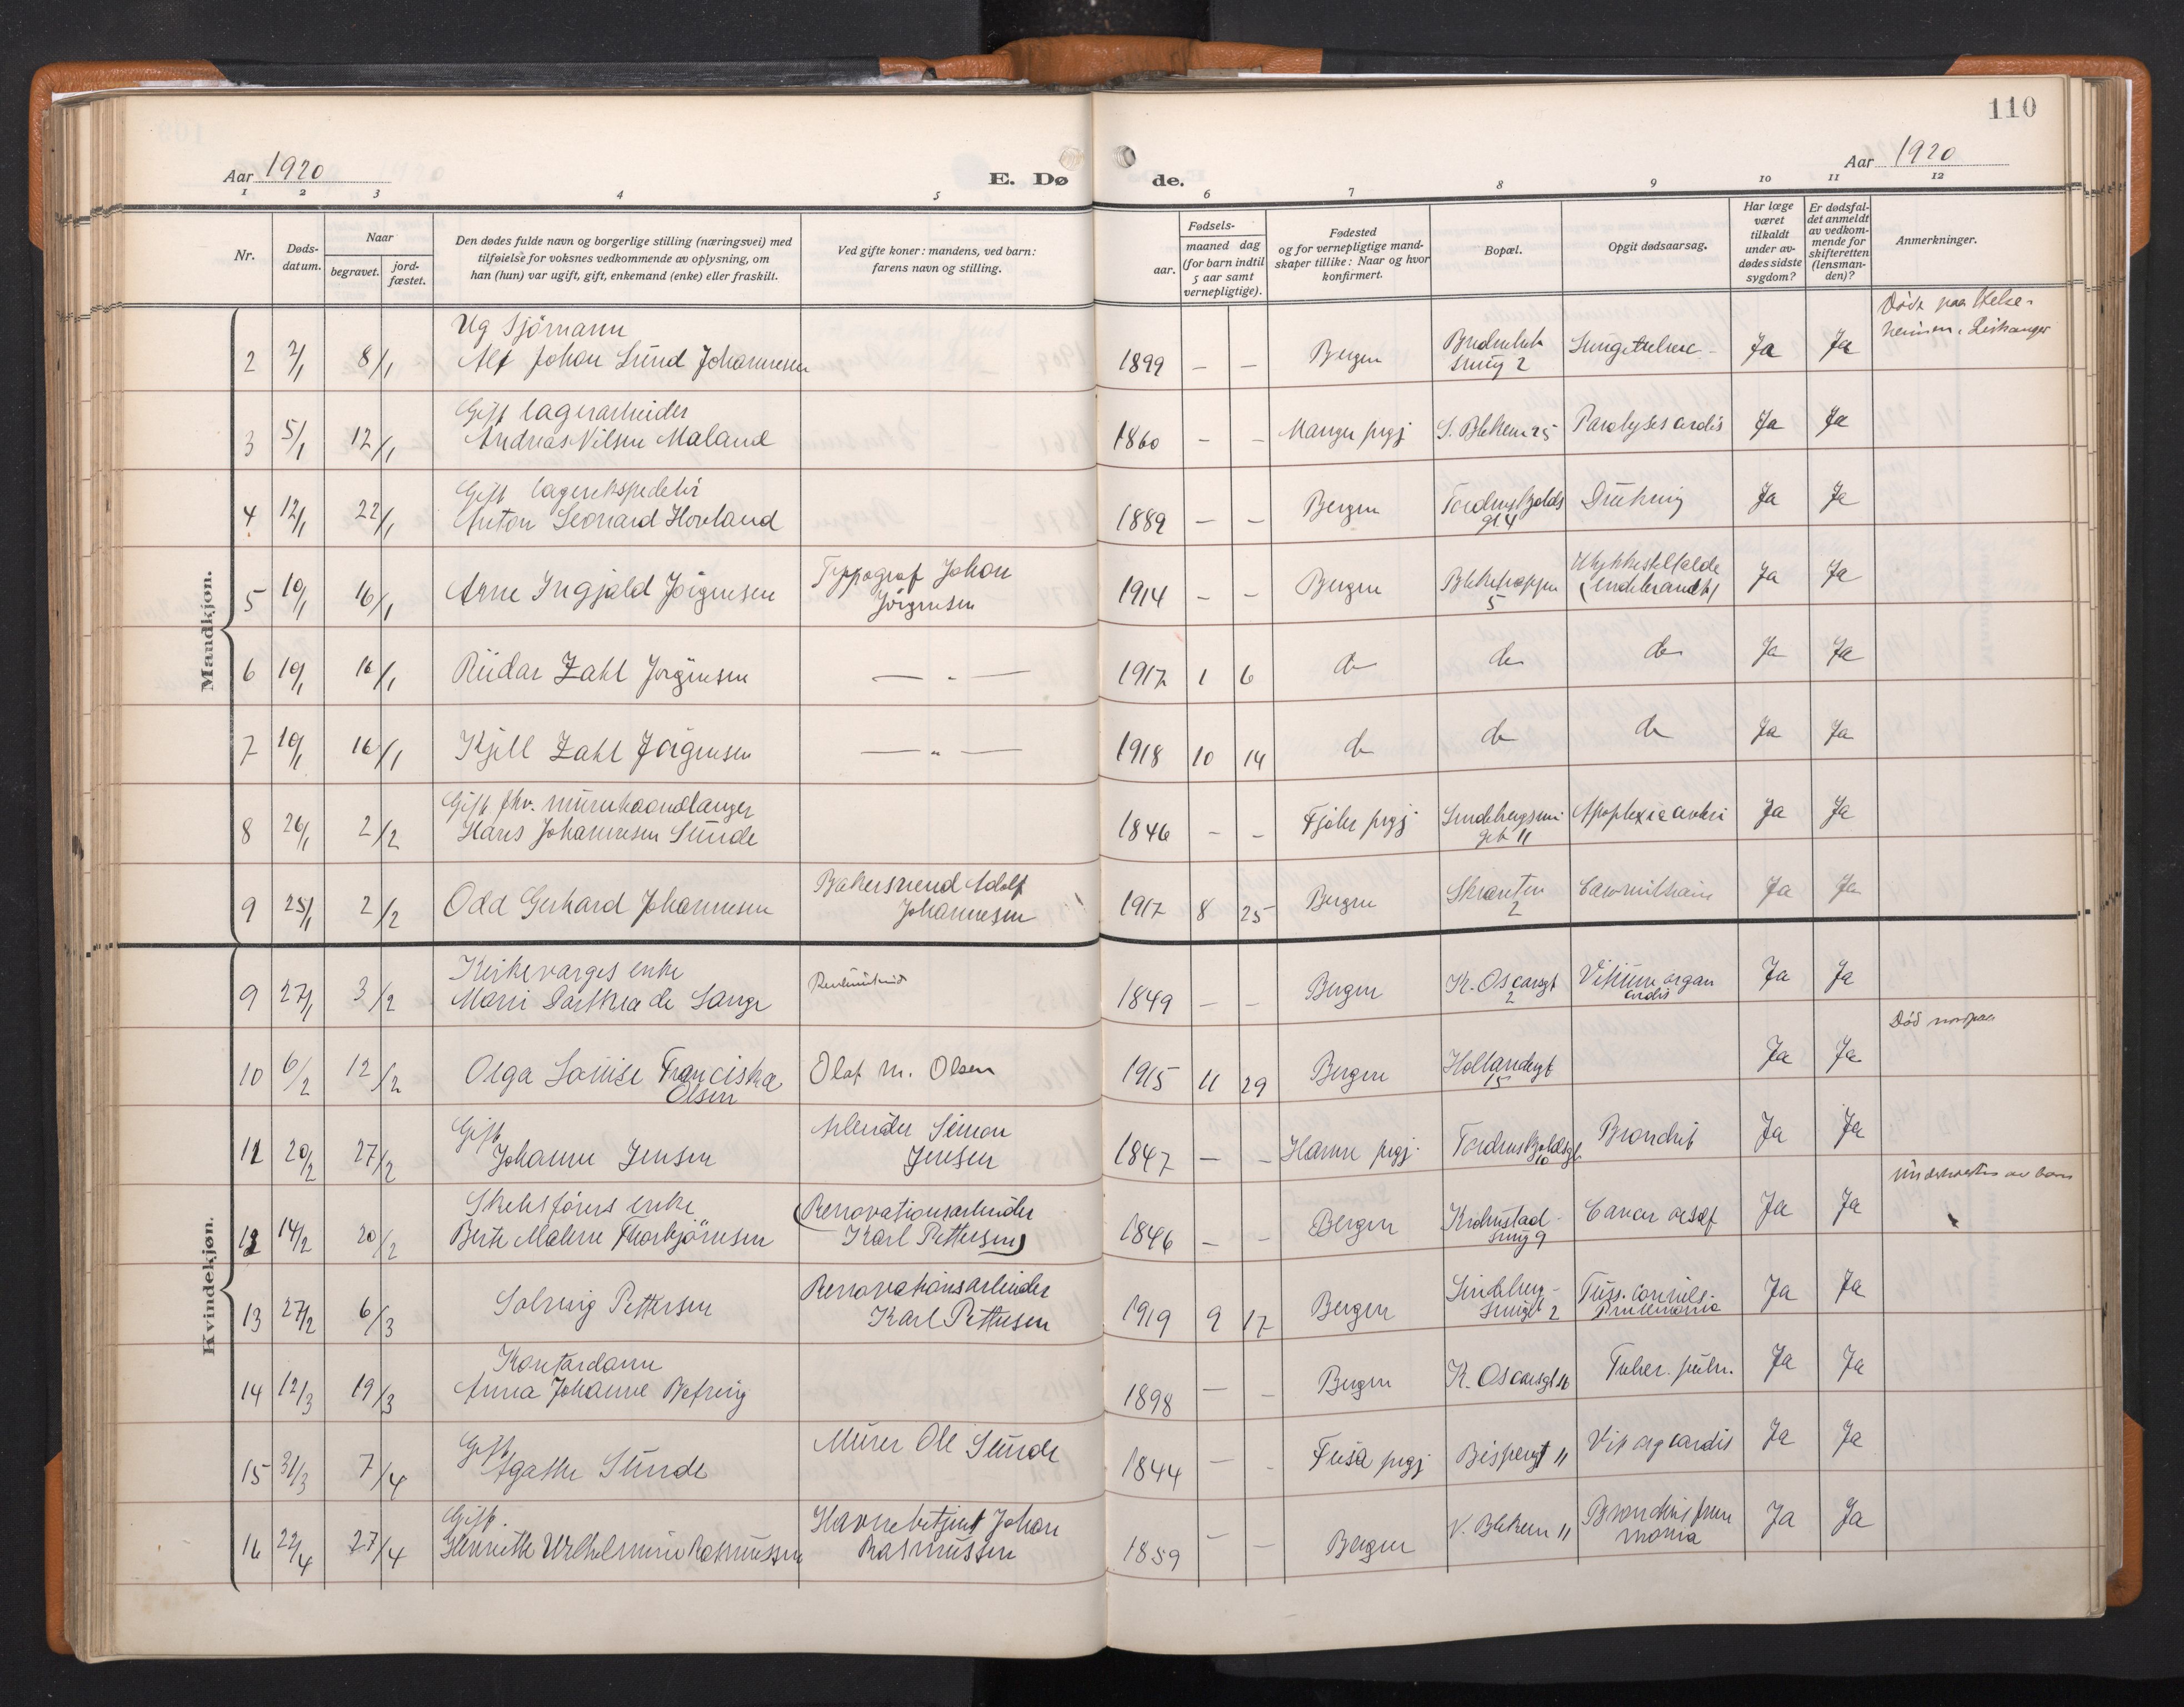 110
Aar 1920
Aar 1920
E. Dø de.
1 2 3 4 5 6 7 8 9 10 11 12
Nr.
Døds-
datum.
Naar
begravet.
jord-
fæstet.
Den dødes fulde navn og borgerlige stilling (næringsvei) med
tilføielse for voksnes vedkommende av oplysning, om
han (hun) var ugift, gift, enkemand (enke) eller fraskilt.
Ved gifte koner: mandens, ved barn:
farens navn og stilling.
Fødsels-
aar.
maaned dag
(for barn indtil
5 aar samt
vernepligtige).
Fødested
og for vernepligtige mand-
skaper tillike: Naar og hvor
konfirmert.
Bopæl.
Opgit dødsaarsag.
Har læge
været
tilkaldt
under av-
dødes sidste
sygdom?
Er dødsfal-
det anmeldt
av vedkom-
mende for
skifteretten
(lensman-
den)?
Anmerkninger.
Mandkjøn.
Ug Sjömann
2 2/1 8/1 Alf Johan Lund Johannesen 1899 – – Bergen 2 Ja Ja
Gift lagerarbeider
3 5/1 12/1 Andreas Nilsen Maland 1860 – – Manger prgj S. Blekevei 25 Paralyses cordis Ja Ja
Gift lagerekspeditör
4 12/1 22/1 Anton Leonard Hovland 1889 – – Bergen Tordenskjolds
gt 4 Ja Ja
5 10/1 16/1 Arne Ingjald Jörgensen Typograf Johan
Jörgensen 1914 – – Bergen 5 Ulykkestilfælde
Ja Ja
6 10/1 16/1 Reidar Zahl Jörgensen — " — 1917 1 6 do do do Ja Ja
7 10/1 16/1 Kjell Zahl Jörgensen — " — 1918 10 14 do do do Ja Ja
Gift fhv. murerhaandlanger
8 26/1 2/2 Hans Johannesen Sunde 1846 – – Fjaler prgj 11 Apoplexia cerebri Ja Ja
9 25/1 2/2 Odd Gerhard Johannesen Bakersvend Adolf
Johannesen 1917 8 25 Bergen Skranten
2 Ja Ja
Kvindekjøn.
Kirkevarges enke
9 27/1 3/2 de Lange 1849 – – Bergen K. Oscarsgt
2 Vitium organ
cordis Ja Ja
10 6/2 12/2 Olga Louise Franciska
Olsen Olaf M. Olsen 1915 11 29 Bergen Hollendergt
15 Ja Ja
Gift
11 20/2 27/2 Johanne Jensen Arbeider Simon
Jensen 1847 – – Hamre prgj. Tordenskjoldsgt
10 Bronchit Ja Ja
enke
12 14/2 20/2 Berte Malene Thorbjörnsen (Renovationsarbeider
Karl Pettersen) 1846 – – Bergen Kronstad-
9 Cancer oesof Ja Ja
13 27/2 6/3 Solveig Pettersen Renovationsarbeider
Karl Pettersen 1919 9 17 Bergen 2 Tuss. convuls.
Pneumonia Ja Ja
Kontordame
14 12/3 19/3 Anna Johanne Befring 1898 – – Bergen K. Oscarsgt 16 Tuber. pulm. Ja Ja
Gift
15 31/3 7/4 Agathe Sunde Murer Ole Sunde 1844 – – Fusa prgj Bispengt 11 Vit org cordis Ja Ja
Gift.
16 22/4 27/4 Henriette Wilhelmine Rasmussen Havnebetjent Johan
Rasmussen 1859 – – Bergen V. Blekevei 11 Ja Ja